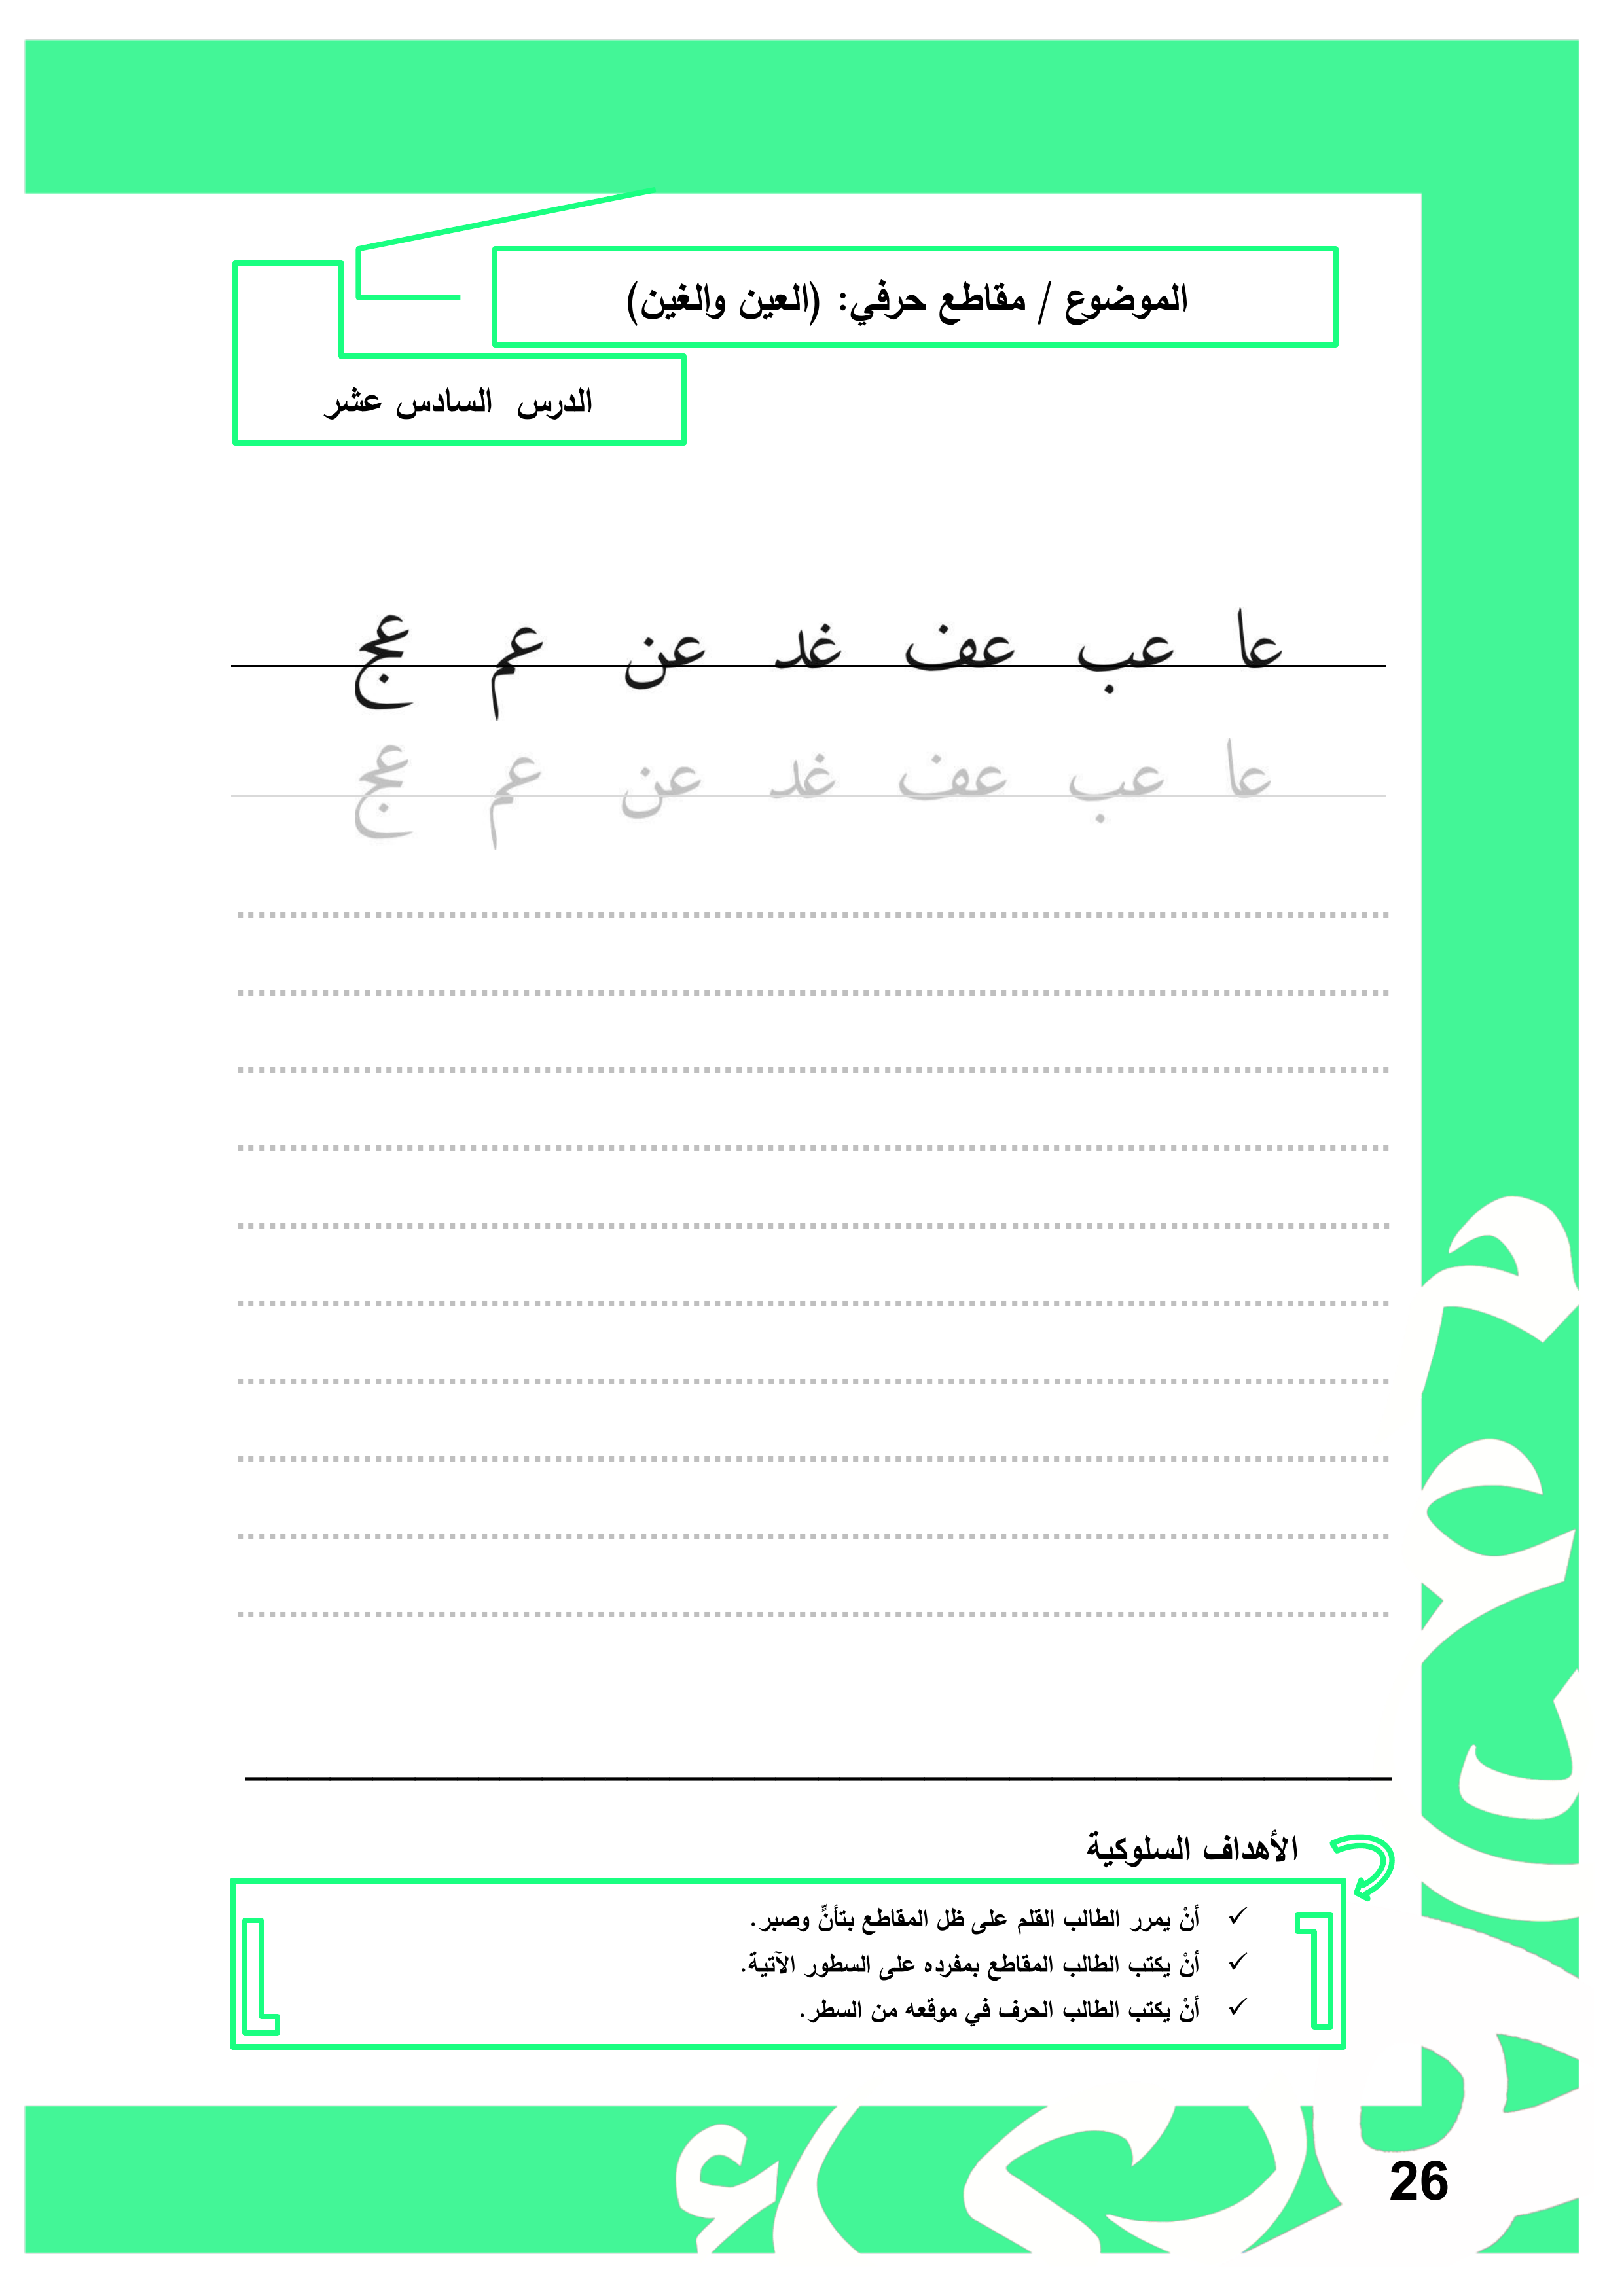 الموضوع / مقاطع حرفي: (العين والغين)
الدرس السادس عشر
عا عب عف غد عن عم عج
عا عب عف غد عن عم عج
الأهداف السلوكية
✓ أنْ يمرر الطالب القلم على ظل المقاطع بتأنٍّ وصبر.
✓ أنْ يكتب الطالب المقاطع بمفرده على السطور الآتية.
✓ أنْ يكتب الطالب الحرف في موقعه من السطر.
26